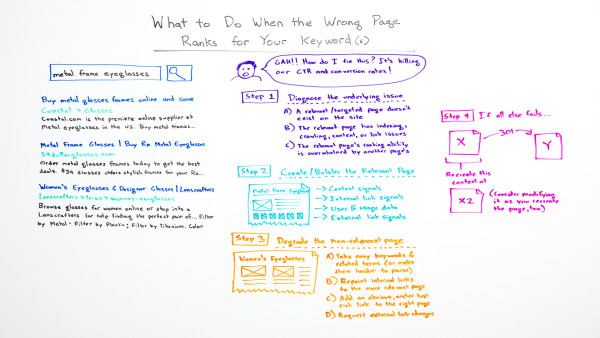 What to Do When the Wrong Page
Ranks for Your Keyword(s)
metal frame eyeglasses
Buy metal glasses frames online and save
Coastal > Glasses
Coastal.com is the premiere online supplier of
Metal eyeglasses in the US. Buy metal
Metal Frame Glasses | Buy Rx Metal Eyeglasses
39dollarglasses.com
Order metal glasses frames today to get the best
deals. $39 glasses offers stylish frames for your Rx...
Women's Eyeglasses & Designer Glasses | Lenscrafters
Lenscrafters > lc-us > womens-eyeglasses
Browse glasses for women online or stop into a
Lenscrafters for help finding the perfect pair of... Filter
by Metal - Filter by Plastic; Filter by Titanium. Color
GAH!! How do I fix this? It's killing
our CTR and conversion rates!
Step 1 Diagnose the underlying issue
A) A relevant/targeted page doesn't
exist on the site
B) The relevant page has indexing,
crawling, content, or link issues
C) The relevant page's ranking ability
is overwhelmed by another page's
Step 2 Create/Bolster the Relevant Page
Metal Frame
Content signals
Internal link signals
User & usage data
External link signals
Step 3 Degrade the non-relevant page
Women's Eyeglasses
A) Take away keywords &
related terms (or make
them harder to parse)
B) Repoint internal links
to the more relevant page
C) Add an obvious, anchor text
rich link to the right page
D) Request external link changes
Step 4 If all else fails...
X
301
Y
Recreate this
content at
X2
(consider modifying
it as you recreate
the page, too)